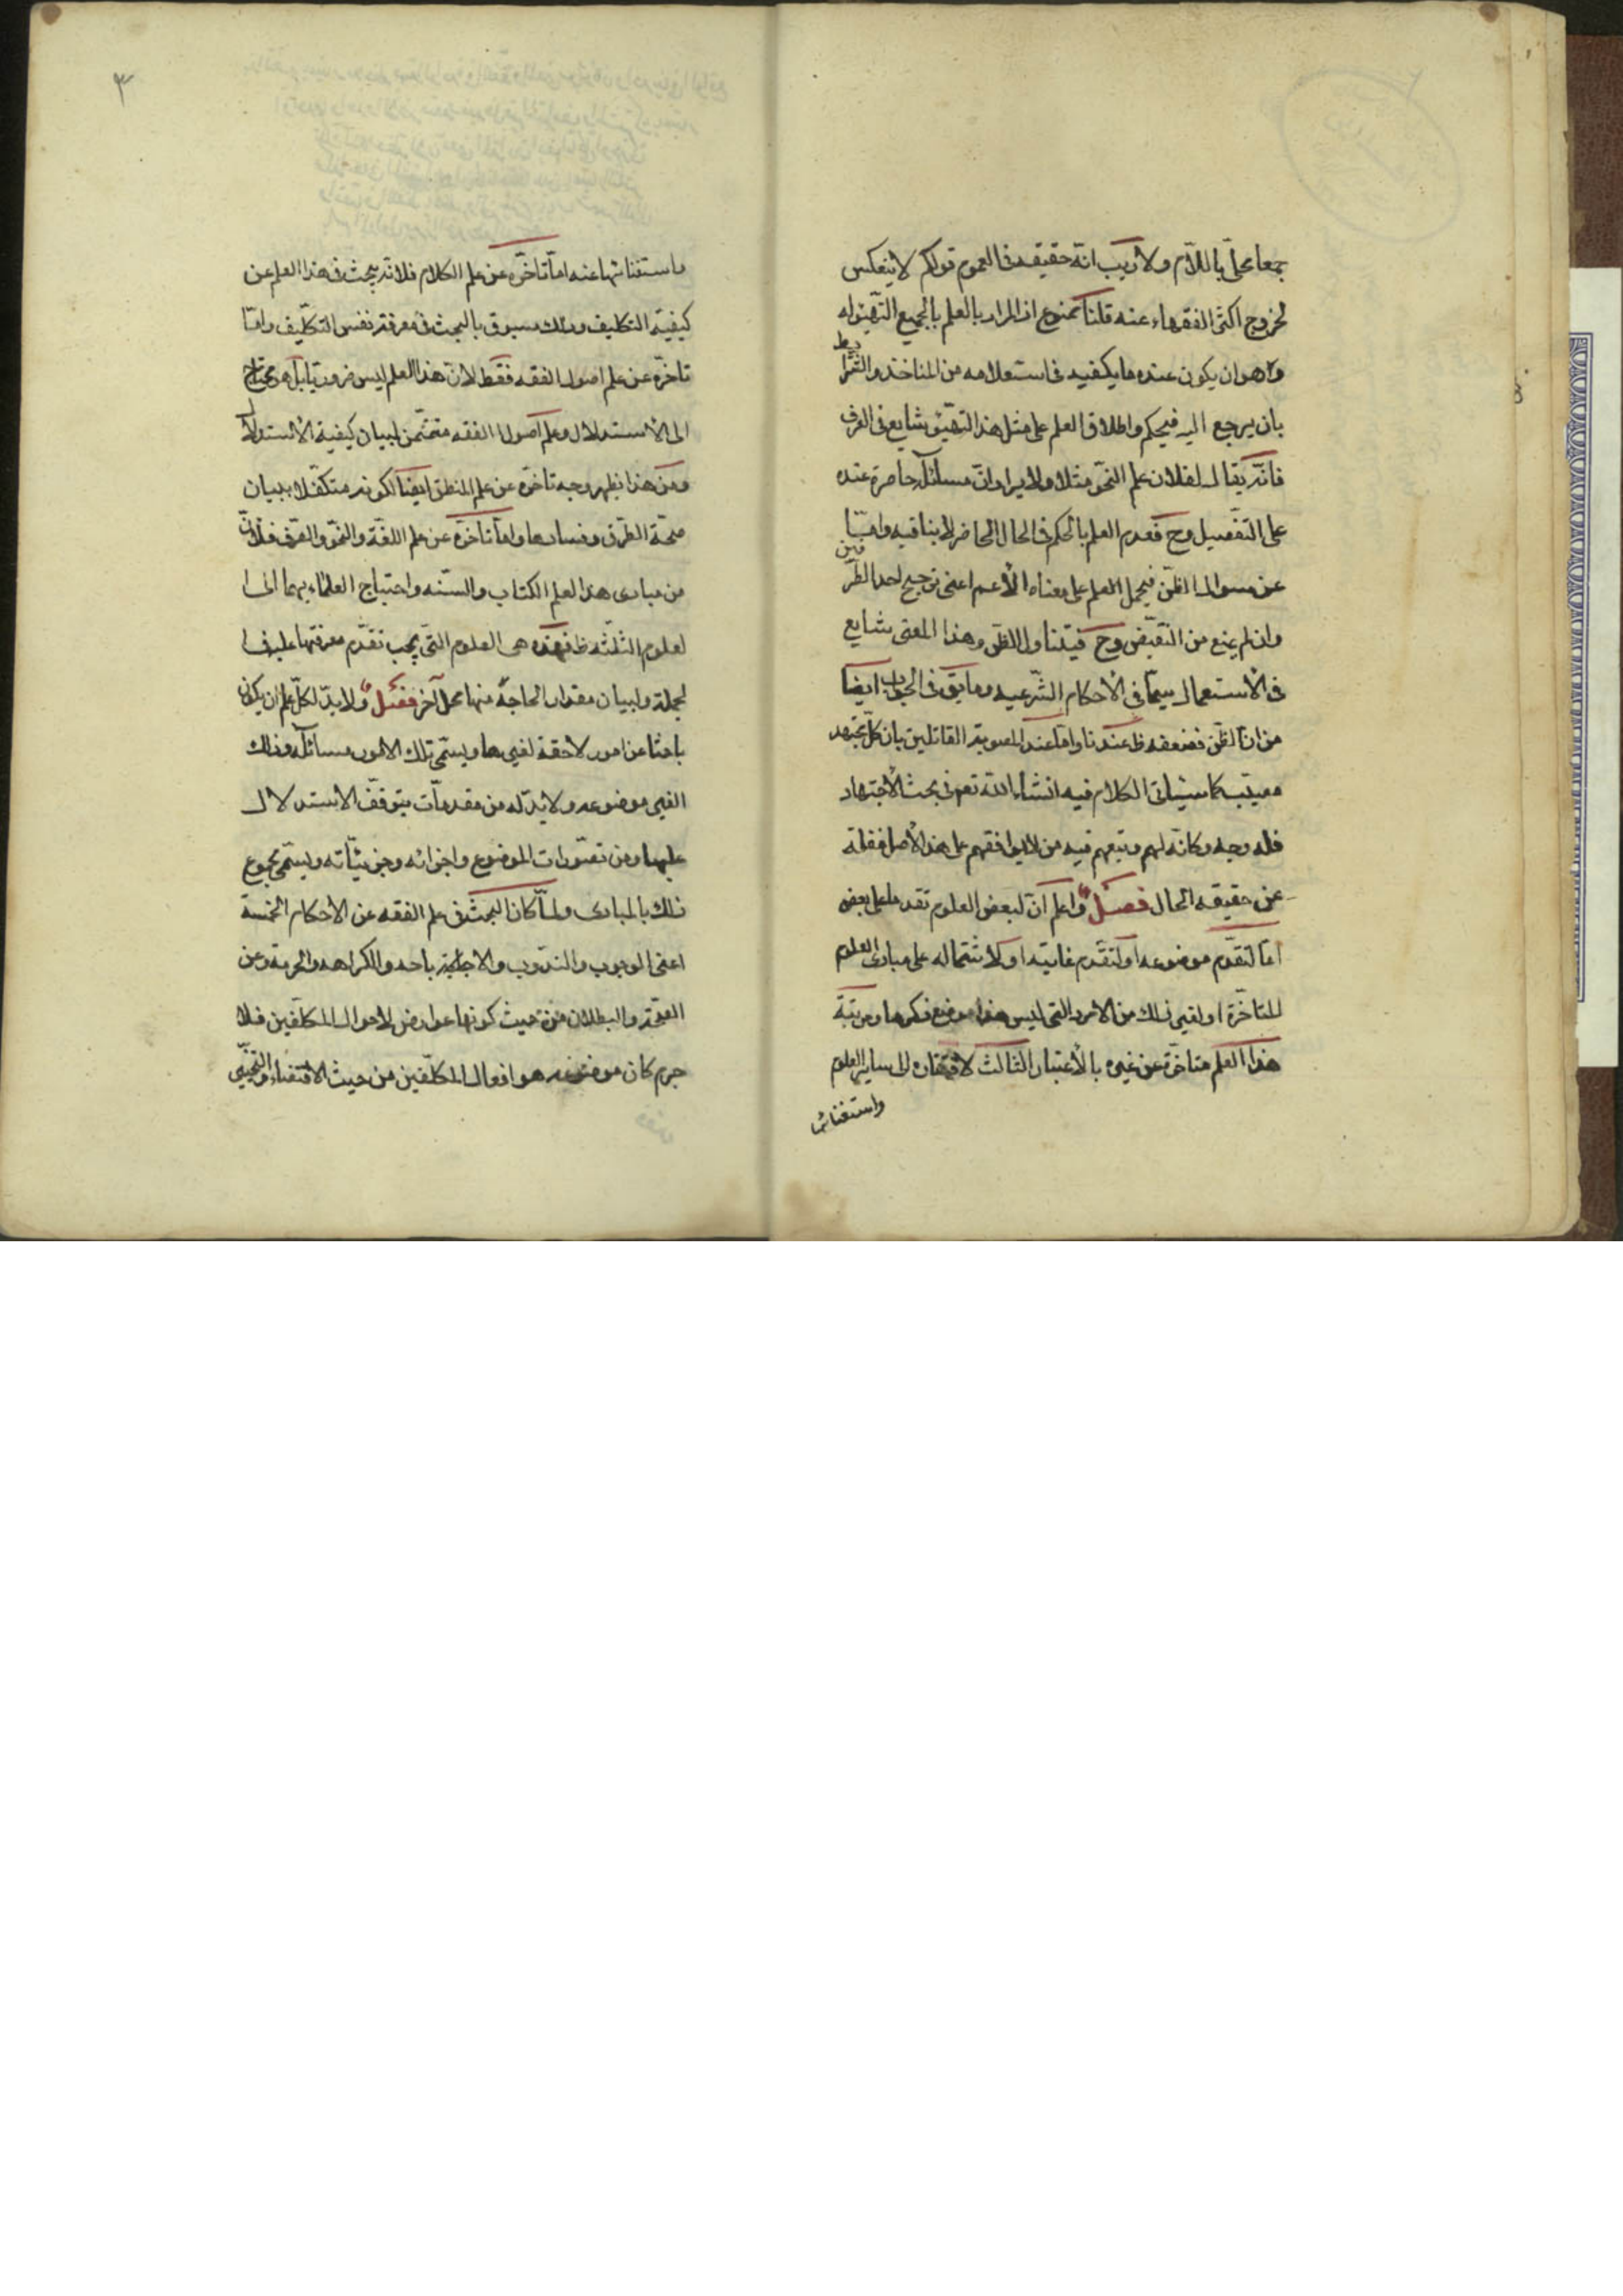 جمعا محلّى باللّام ولا ريب انّه حقيقه فى العموم قولكم لا ينعكس
لخروج اكثر الفقهاء عنه قلنا ممنوع اذ المراد بالعلم بالجميع التّهيّؤ له
وهو ان يكون عنده ما يكفيه فى استعلامه من المأخذ والشّرا
يط
بان يرجع اليه فيحكم واطلاق العلم على مثل هذا التهيّؤ شايع فى العرف
فانّه يقال لفلان علم النّحو مثلا ولا يراد انّ مسائله حاضرة عنده
على التّفصيل وح فعدم العلم بالحكم فى الحال الحاضر لا ينافيه وامّا
عن سؤال الظنّ فيحمل العلم على معناه الأعم اعنى ترجيح احد الطّر
فين
وان لم يمنع من النّقيض وح فيتناول الظنّ وهذا المعنى شايع
فى الأستعمال سيّما فى الأحكام الشّرعيه وما يق فى الجواب ايضا
من انّ الظنّ فضعفه ظ عندنا وامّا عند المصوبة القائلين بان كلّ مجتهد
مصيب كما سياتى الكلام فيه انشاء اللّه تعم فى بحث الأجتهاد
فله وجه وكانّه لهم وتبعهم فيه من لا يوافقهم على هذا الأصل غفلة
عن حقيقه الحال فصل واعلم انّ لبعض العلوم تقدما على بعض
امّا لتقدّم موضوعه او لتقدّم غايته او لاشتماله على مبادى العلوم
المتاخّرة او لغير ذلك من الامور التى ليس هذا موضع ذكرها ومرتبة
هذا العلم متاخّرة عن غيره بالأعتبار الثالث لافتقاره الى ساير العلوم
واستغنائها
واستغنائها عنه امّا تاخّره عن علم الكلام فلانّه يبحث فى هذا العلم عن
كيفيّة التكليف وذلك مسبوق بالبحث فى معرفة نفس التكليف وامّا
تاخرّه عن علم اصول الفقه فقط لانّ هذا العلم ليس ضروريّا بل هو محتاج
الى الأستدلال وعلم اصول الفقه متضمّن لبيان كيفية الأستدلال
ومن هذا يظهر وجه تاخّره عن علم المنطق ايضا لكونه متكفّلا ببيان
صحّة الطّرق وفسادها وامّا تاخّره عن علم اللغّة والنّحو والصّرف فلانّ
من مبادى هذا العلم الكتاب والسّنّه واحتياج العلماء بهما الى ا
لعلوم الثلثه ظ فهذه هى العلوم التّى يجب تقدّم معرفتها عليه فى ا
لجملة ولبيان مقدار الحاجة منها محل آخر فصل ولا بدّ لكلّ علم ان يكون
باحثا عن امور لاحقة لغيرها ويسمّى تلك الامور مسائله وذلك
الغير موضوعه ولا بدّ له من مقدمات يتوقّف الاستدلال
عليها ومن تصّورات الموضوع واجزائه وجزئيّاته ويسمّى مجموع
ذلك بالمبادى ولمّا كان البحث فى علم الفقه عن الأحكام الخمسة
اعنى الوجوب والنّدب والاباحه والكراهه والحرمة وعن
الصّحّة والبطلان من حيث كونها عوارض لاحوال المكلّفين فلا
جرم كان موضوعه هو افعال المكلّفين من حيث الاقتضاء والتّخيير